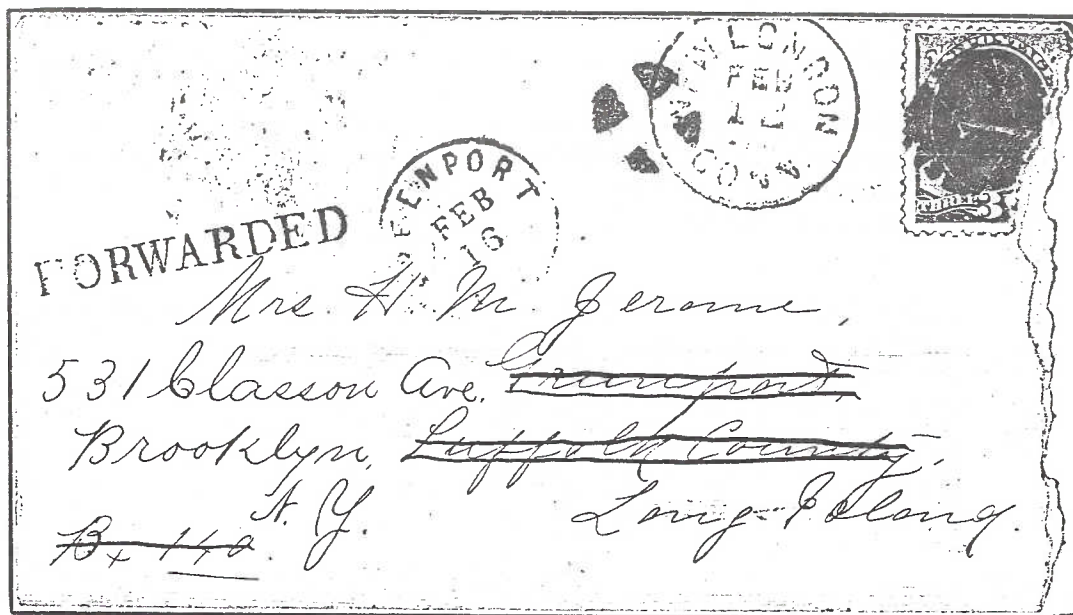 NEW LONDON
FEB
CONN.
POSTAGE
THREE 3
GREENPORT
FEB
16
FORWARDED
Mrs. H. M. Jerome,
531 Classon Ave. Greenport,
Brooklyn, Suffolk County,
N. Y. Long Island.
Bx 140